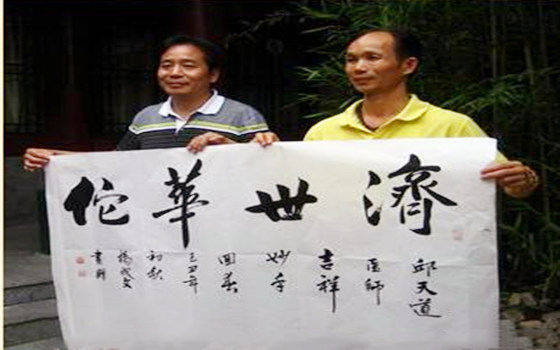 濟世華佗
邱天道
医師
吉祥
妙手
回春
己丑年
初秋